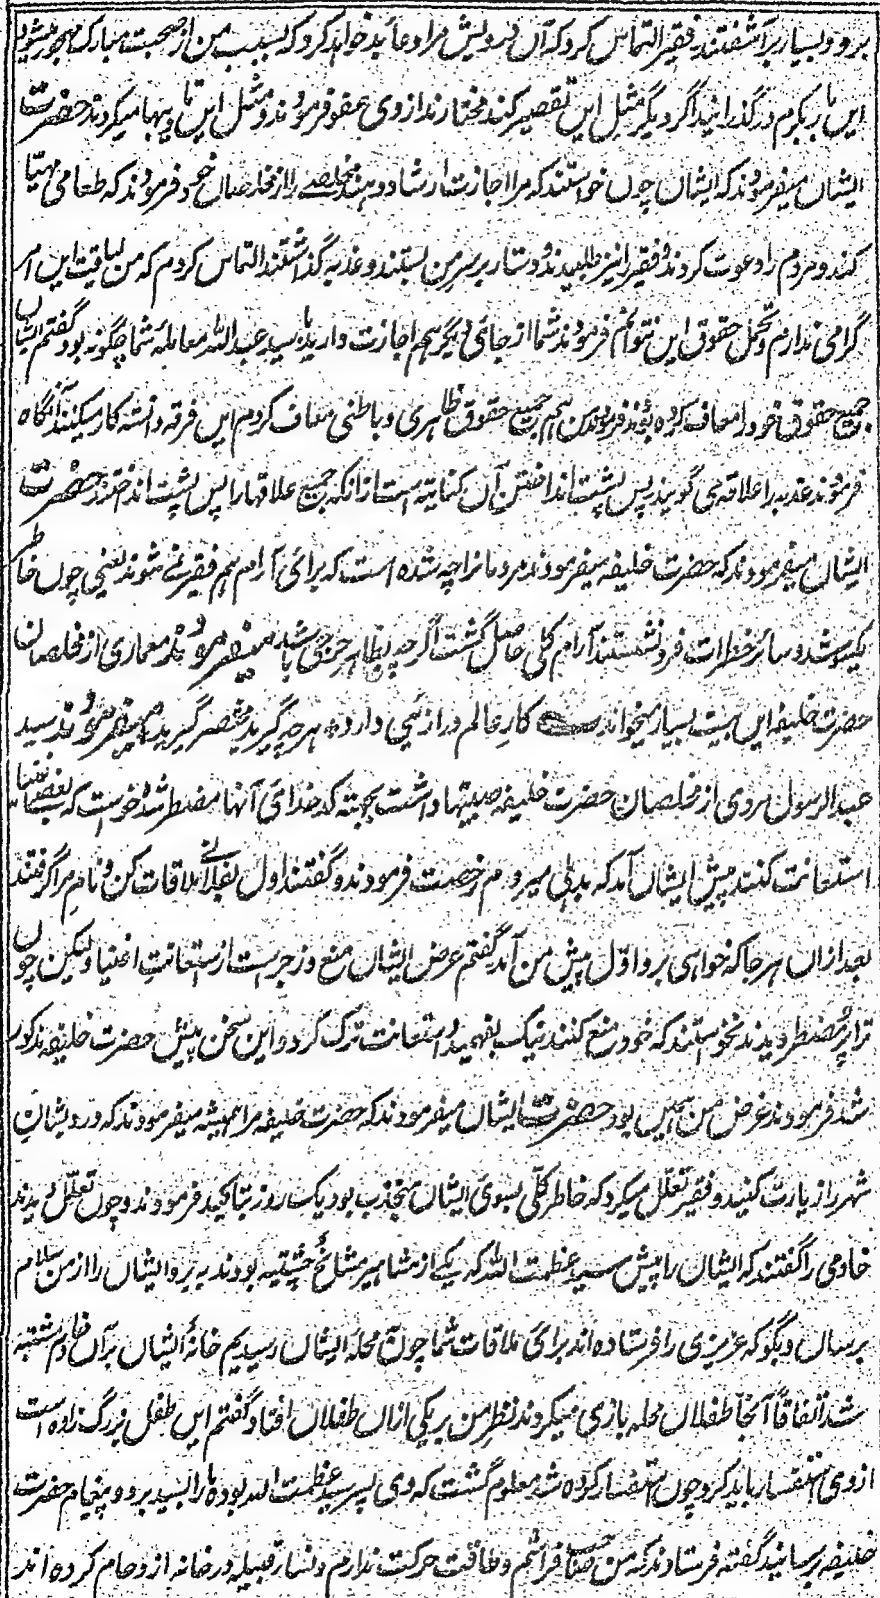 برو و بسیار برآشفتند فقیر التماس کرد که آن درویش مرا دعا بد خواهد کرد که بسبب من از صحبت مبارک مهجور میشود
این بار بکرم درگذرانید اگر دیگر مثل این تقصیر کند مختارند از وی عفو فرمودند و مثل این تادیبها میکردند حضرت
ایشان میفرمودند که ایشان چون خواستند که مرا اجازت ارشاد دهند مخلصے را از مخلصان خود فرمودند که طعامی مهیا
کند و مردم را دعوت کردند و فقیر را نیز طلبیدند و دستار بر سر من بستند و عذبه گذاشتند التماس کردم که من لیاقت این امر
گرامی ندارم و تحمل حقوق این نتوانم فرمودند شما از جائی دیگر هم اجازت دارید با سید عبدالله معامله شما چگونه بود گفتم ایشان
جمیع حقوق خود را معاف کرده بودند فرمودند من هم جمیع حقوق ظاهری و باطنی معاف کردم این فرقه دانسته کار میکنند آنگاه
فرمودند عذبه را علاقه می گویند پس پشت انداختن آن کنایه است از آنکه جمیع علاقها را پس پشت انداختند حضرت
ایشان میفرمودند که حضرت خلیفه میفرمودند مردمان را چه شده است که برائی آرام هم فقیر نمے شوند یعنی چون خاطر
یکسو شد و سائر خطرات فرو نشستند آرام کلی حاصل گشت اگرچه بظاهر حرجی باشد میفرمودند معماری از مخلصان
حضرت خلیفه این بیت بسیار میخواند ے کار عالم درازئی دارد هرچه گیرید مختصر گیرید میفرمودند سید
عبدالرسول مروی از مخلصان حضرت خلیفه صبیتها داشت بجهته کدخدائی آنها مضطر شد خواست که ببعض اغنیا
استعانت کنند پیش ایشان آمد که بدهلی میروم رخصت فرمودند و گفتند اول بفلانے ملاقات کن و نام مرا گرفتند
بعد ازان هر جا که خواهی برو اول پیش من آمد گفتم غرض ایشان منع و زجر است از استعانت اغنیا و لیکن چون
ترا مضطر دیدند نخواستند که خود منع کنند نیک بفهمید و استعانت ترک کرد و این سخن پیش حضرت خلیفه مذکور
شد فرمودند غرض من همین بود حضرت ایشان میفرمودند که حضرت خلیفه مرا همیشه میفرمودند که درویشان
شهر را زیارت کنید و فقیر تعلل میکرد که خاطر کلی بسوی ایشان منجذب بود یک روز بتاکید فرمودند و چون تعلل دیدند
خادمی را گفتند که ایشان را پیش سید عظمت الله که یکے از مشاهیر مشائخ چشتیه بودند ببر و ایشان را از من سلام
برسان و بگو که عزیزی را فرستاده اند برائی ملاقات شما چون محله ایشان رسیدیم خانه ایشان بر آن خادم مشتبه
شد اتفاقاً آنجا طفلان محله بازی میکردند نظر من بر یکی ازان طفلان افتاد گفتم این طفل بزرگ زاده است
از وی استفسار باید کرد چون استفسار کرده شد معلوم گشت که وی پسر سید عظمت الله بوده ما را ببرد و پیغام حضرت
خلیفه رسانید گفته فرستادند که من صاحب فراشم و طاقت حرکت ندارم و نساء قبیله در خانه ازدحام کرده اند